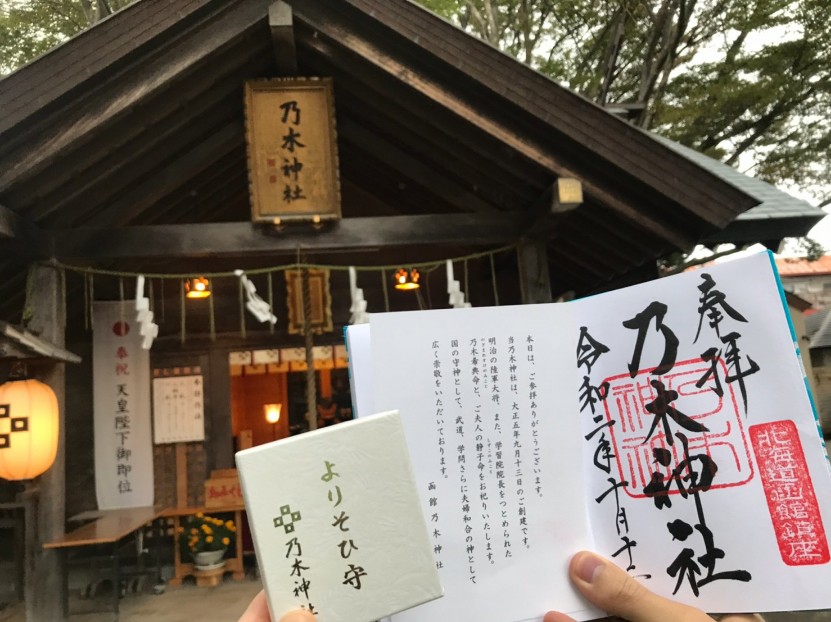 乃木神社
奉祝
天皇陛下御即位
よりそひ守
乃木神社
本日は、ご参拝ありがとうございます。
当乃木神社は、大正五年九月十三日のご創建です。
明治の陸軍大将、また、学習院院長をつとめられた
乃木希典命と、ご夫人の静子命をお祀りいたします。
国の守神として、武道、学問さらに夫婦和合の神として
広く崇敬をいただいております。
函館乃木神社
奉拝
乃木神社
令和二年十月十二
北海道函館鎮座